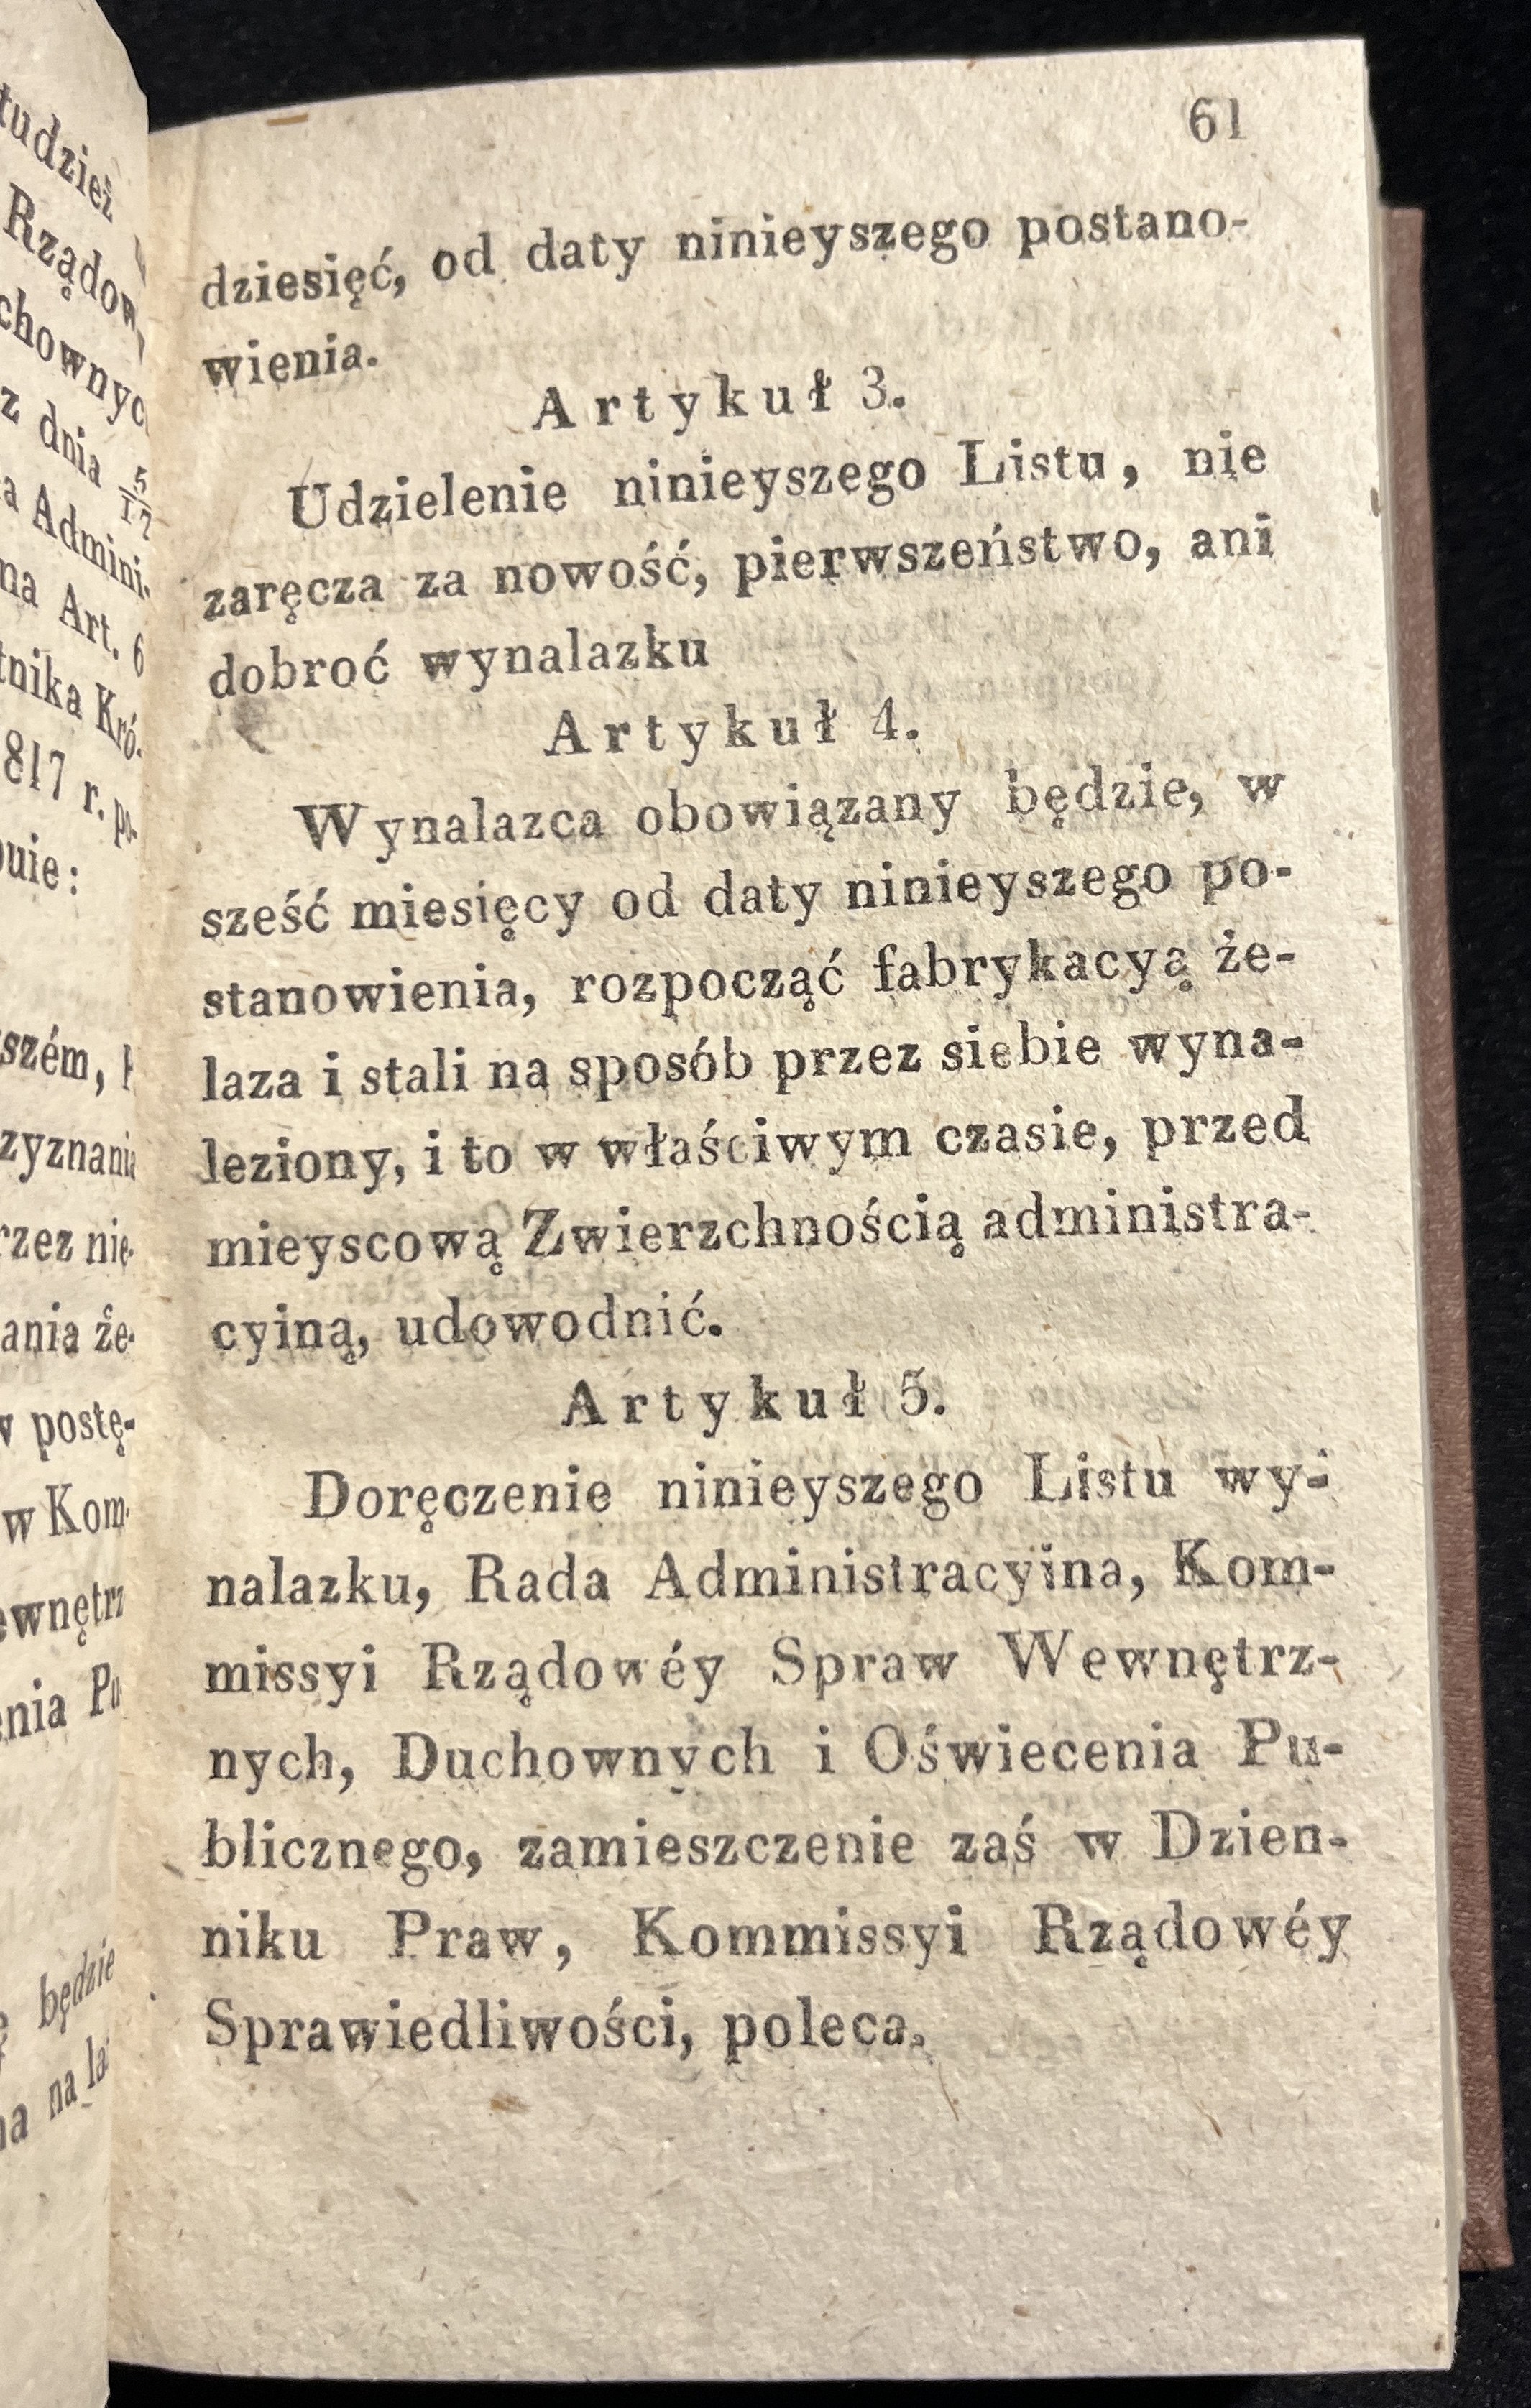 tudzież
Rządow
chownyc
z dnia 5/17
a Admini-
na Art. 6
tnika Kró-
817 r. po-
uie:
szém,
zyznania
rzez nie-
ania że-
w postę-
w Kom-
ewnętrz
enia Pu
będzie
na na lat
61
dziesięć, od daty ninieyszego postano-
wienia.
Artykuł 3.
Udzielenie ninieyszego Listu, nie
zaręcza za nowość, pierwszeństwo, ani
dobroć wynalazku
Artykuł 4.
Wynalazca obowiązany będzie, w
sześć miesięcy od daty ninieyszego po-
stanowienia, rozpocząć fabrykacyą że-
laza i stali na sposób przez siebie wyna-
leziony, i to w właściwym czasie, przed
mieyscową Zwierzchnością administra-
cyiną, udowodnić.
Artykuł 5.
Doręczenie ninieyszego Listu wy-
nalazku, Rada Administracyina, Kom-
missyi Rządowéy Spraw Wewnętrz-
nych, Duchownych i Oświecenia Pu-
blicznego, zamieszczenie zaś w Dzien-
niku Praw, Kommissyi Rządowéy
Sprawiedliwości, poleca.